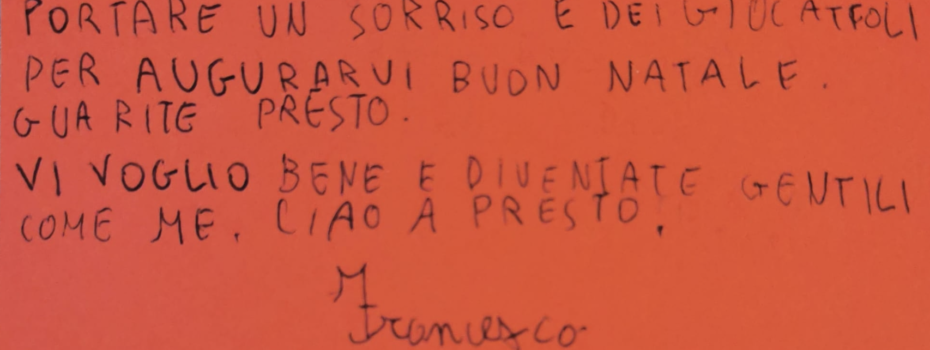 PORTARE UN SORRISO E DEI GIOCATTOLI
PER AUGURARVI BUON NATALE.
GUARITE PRESTO.
VI VOGLIO BENE E DIVENTATE GENTILI
COME ME. CIAO A PRESTO.
M
Francesco